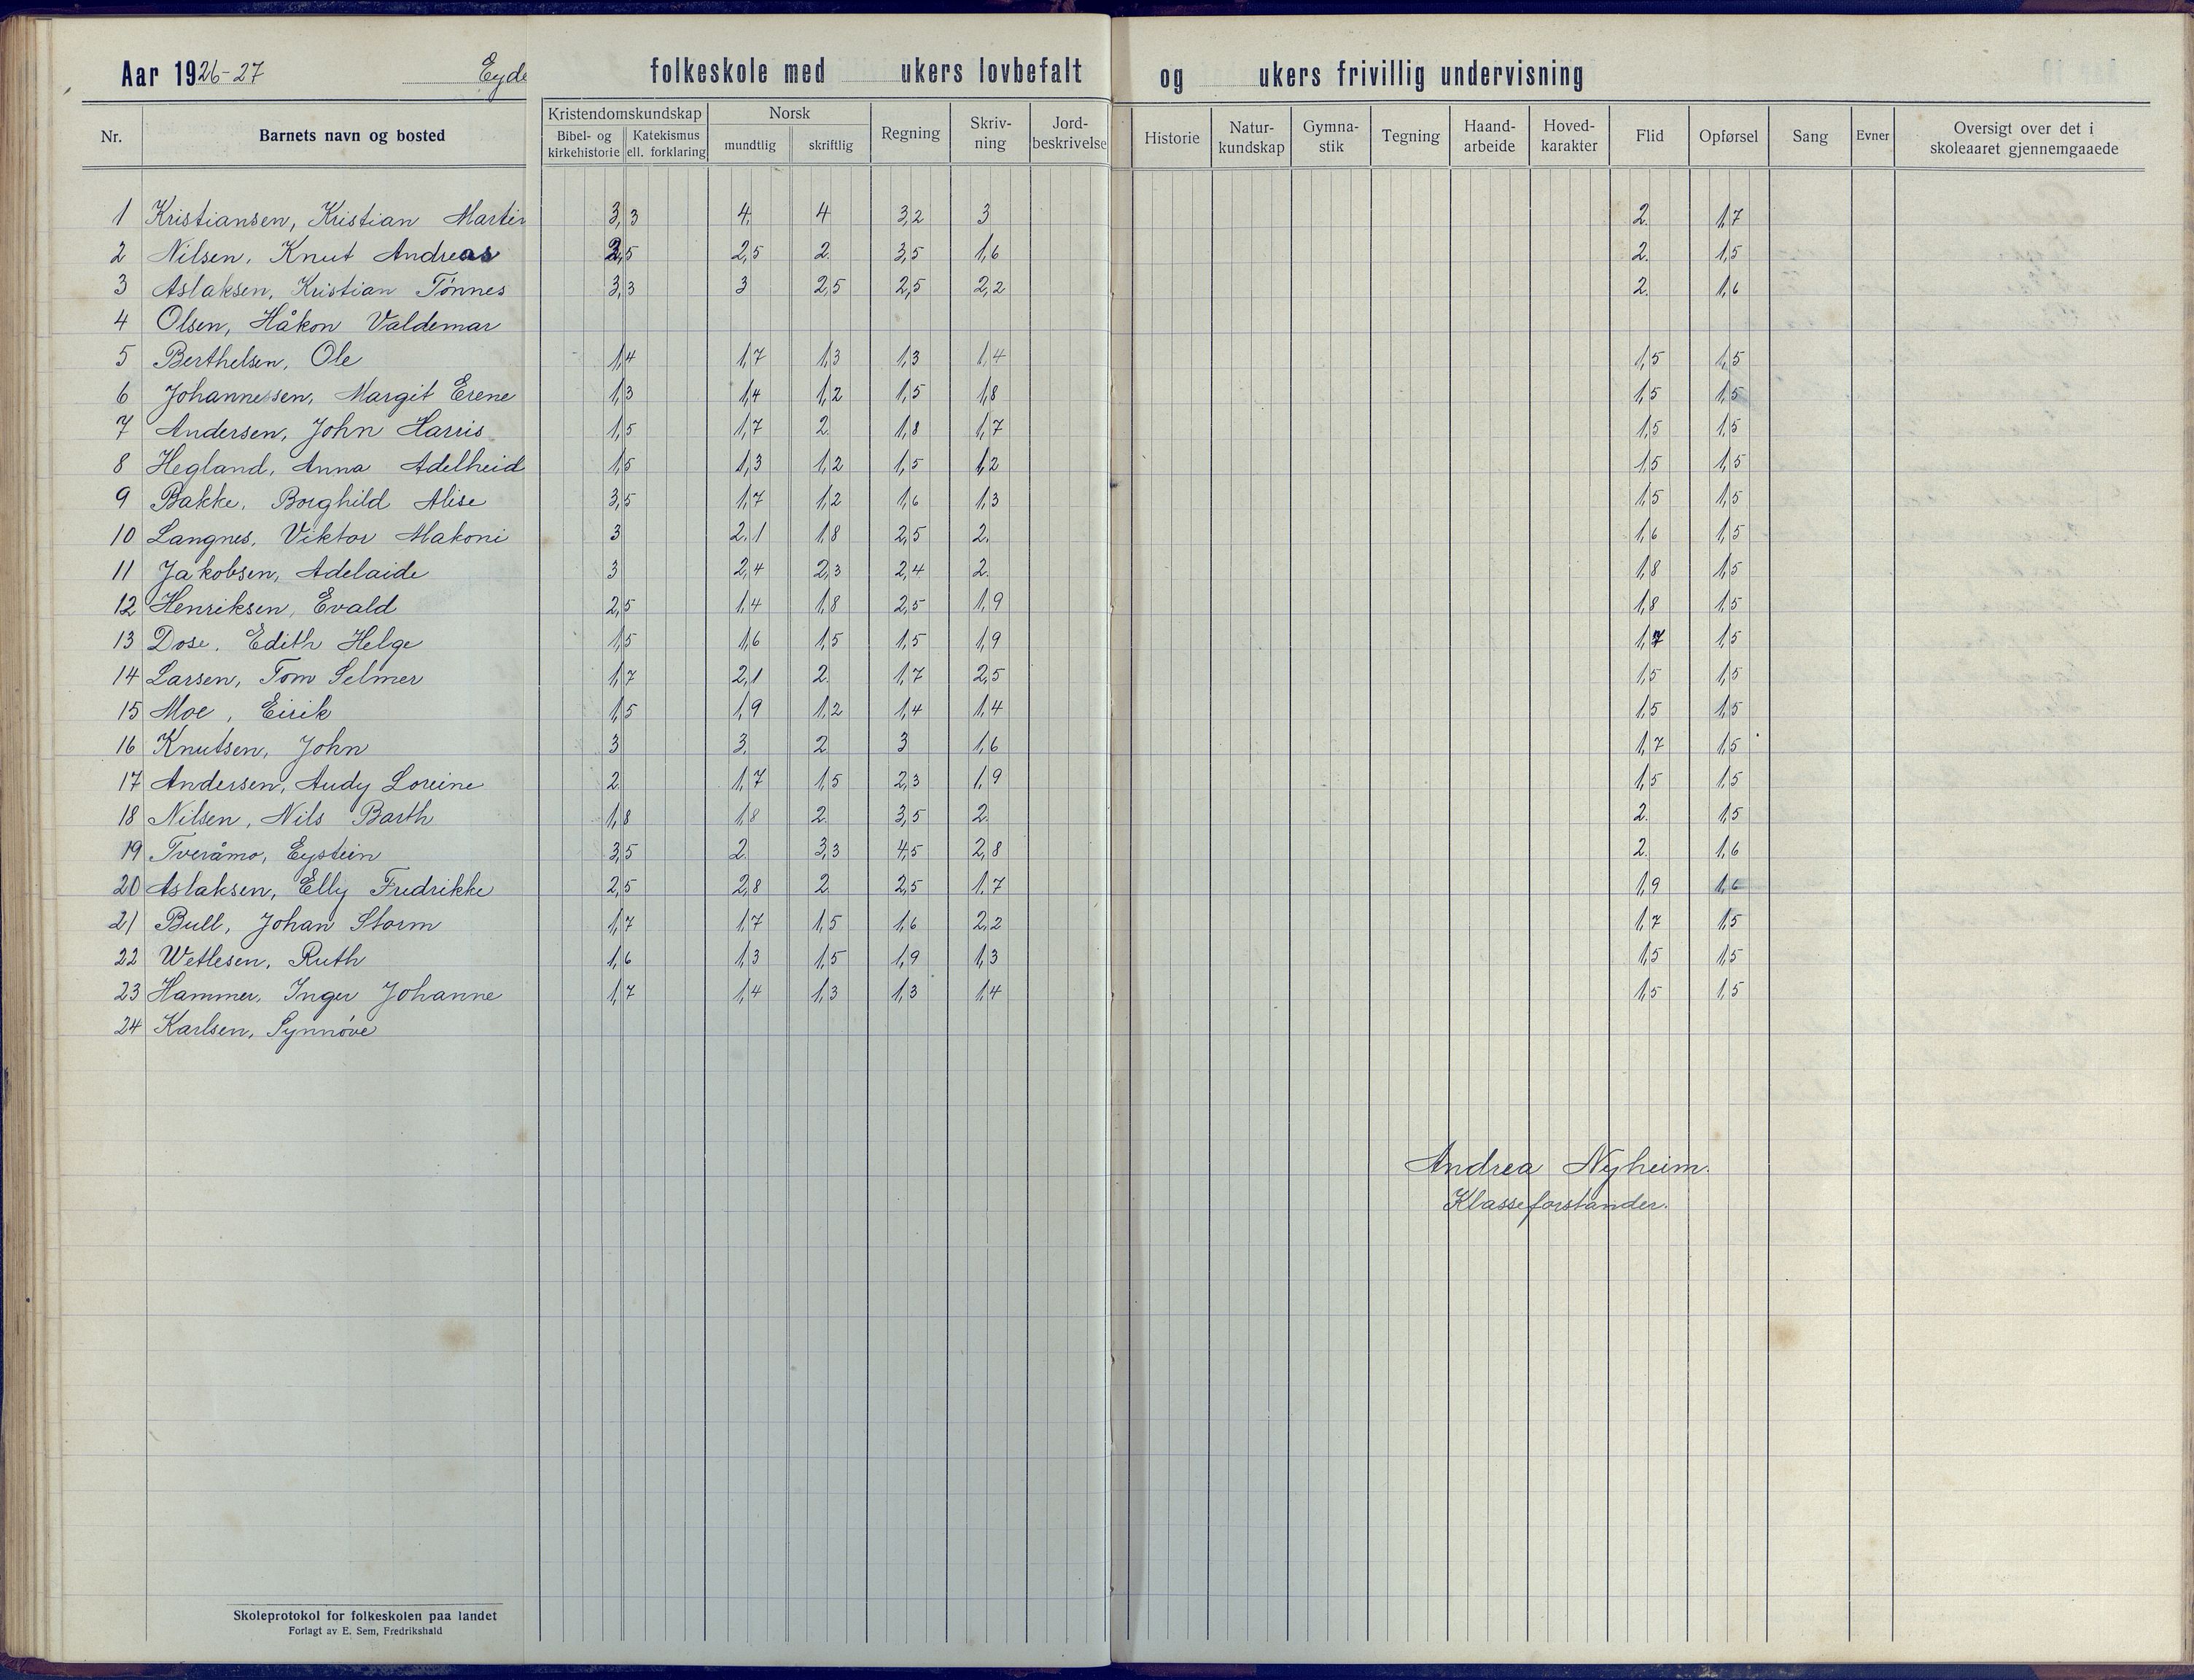 Aar 1926-27 Eyde folkeskole med ukers lovbefalt og ukers frivillig undervisning
Nr. Barnets navn og bosted Kristendomskundskap Bibel- og kirkehistorie Katekismus ell. forklaring Norsk mundtlig skriftlig Regning Skriv-ning Jord-beskrivelse Historie Natur-kundskap Gymna-stik Tegning Haand-arbeide Hoved-karakter Flid Opførsel Sang Evner Oversigt over det i skoleaaret gjennemgaaede
1 Kristiansen, Kristian Martin 3,3 4. 4 3,2 3 2. 1,7
2 Nilsen, Knut Andreas 2,5 2,5 2. 3,5 1,6 2. 1,5
3 Aslaksen, Kristian Tønnes 3,3 3 2,5 2,5 2,2 2. 1,6
4 Olsen, Håkon Valdemar
5 Berthelsen, Ole 1,4 1,7 1,3 1,3 1,4 1,5 1,5
6 Johannessen, Margit Erene 1,3 1,4 1,2 1,5 1,8 1,5 1,5
7 Andersen, John Harris 1,5 1,7 2. 1,8 1,7 1,5 1,5
8 Hegland, Anna Adelheid 1,5 1,3 1,2 1,5 1,2 1,5 1,5
9 Bakke, Borghild Alise 3,5 1,7 1,2 1,6 1,3 1,5 1,5
10 Langnes, Viktor Makoni 3 2,1 1,8 2,5 2. 1,6 1,5
11 Jakobsen, Adelaide 3 2,4 2,3 2,4 2. 1,8 1,5
12 Henriksen, Evald 2,5 1,4 1,8 2,5 1,9 1,8 1,5
13 Dose, Edith Helge 1,5 1,6 1,5 1,5 1,9 1,7 1,5
14 Larsen, Tom Selmer 1,7 2,1 2. 1,7 2,5 1,5 1,5
15 Moe, Eirik 1,5 1,9 1,2 1,4 1,4 1,5 1,5
16 Knutsen, John 3 3. 2. 3 1,6 1,7 1,5
17 Andersen, Audy Loreine 2. 1,7 1,5 2,3 1,9 1,5 1,5
18 Nilsen, Nils Barth 1,8 1,8 2. 3,5 2. 2. 1,5
19 Tveråmo, Eystein 3,5 2. 3,3 4,5 2,8 2. 1,6
20 Aslaksen, Elly Fredrikke 2,5 2,8 2. 2,5 1,7 1,9 1,6
21 Bull, Johan Storm 1,7 1,7 1,5 1,6 2,2 1,7 1,5
22 Wetlesen, Ruth 1,6 1,3 1,5 1,9 1,3 1,5 1,5
23 Hammer, Inger Johanne 1,7 1,4 1,3 1,3 1,4 1,5 1,5
24 Karlsen, Synnøve
Andrea Nyheim.
Klasseforstander.
Skoleprotokol for folkeskolen paa landet
Forlagt av E. Sem, Fredrikshald